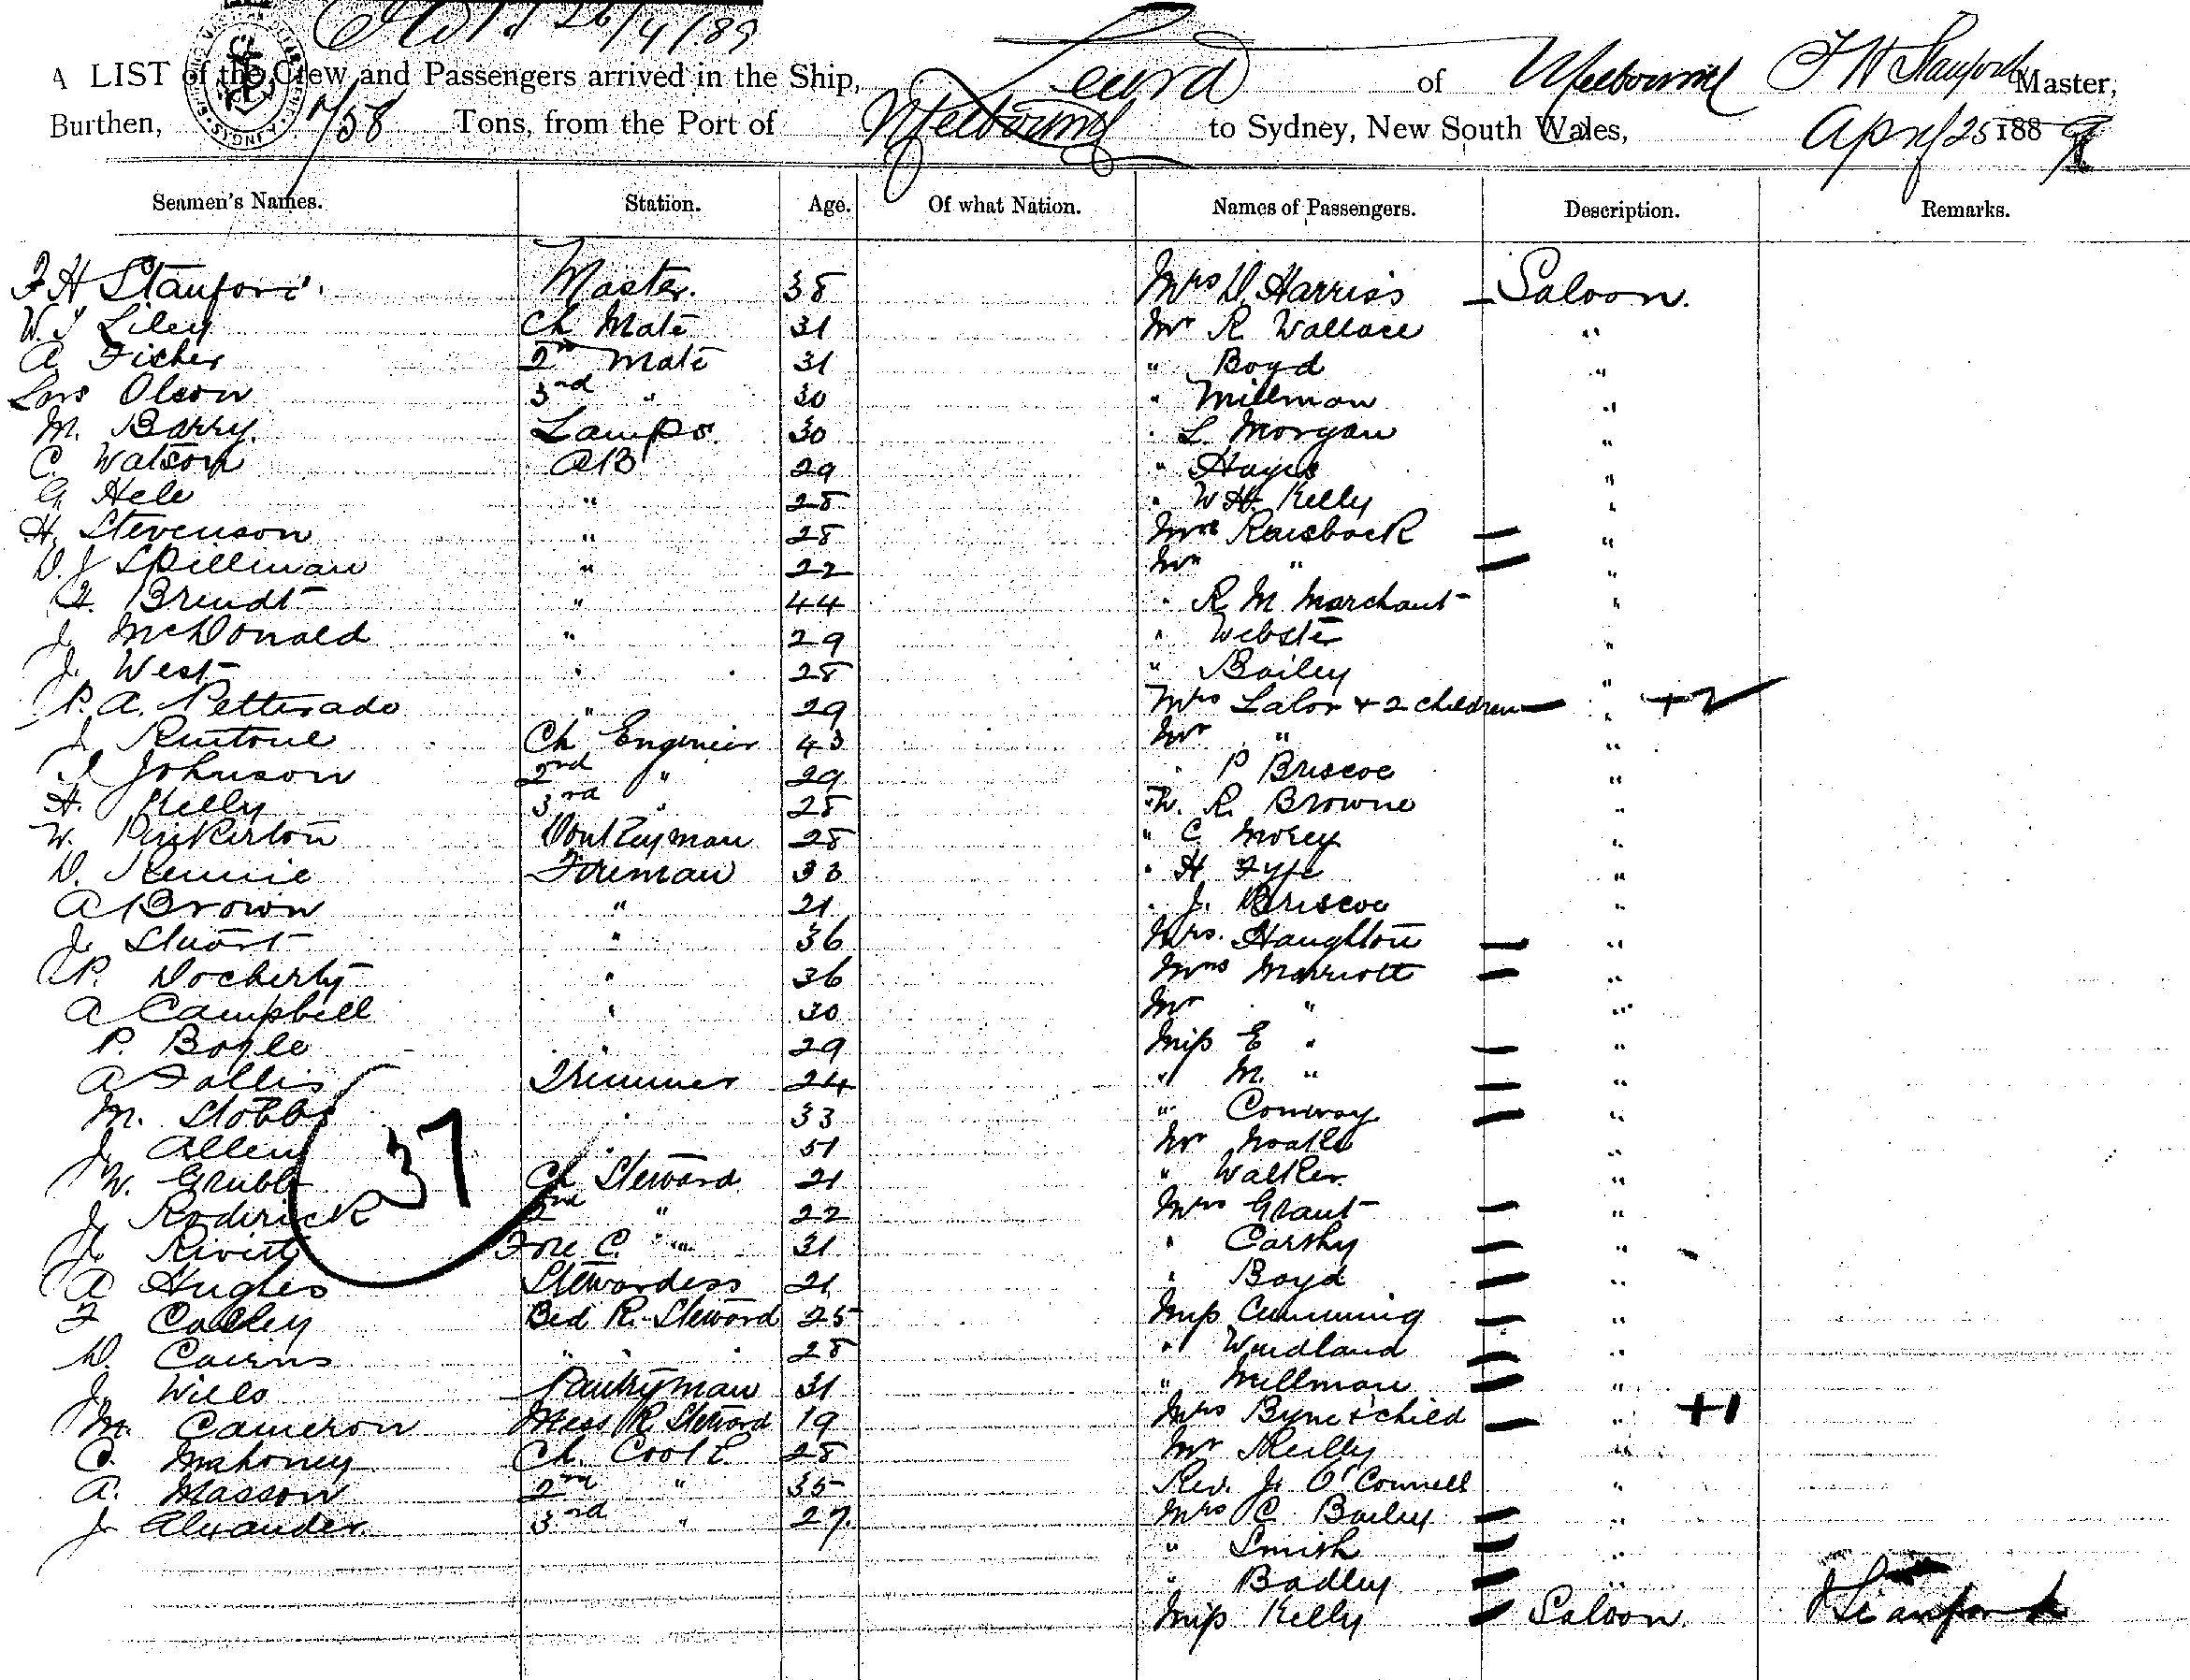 26/4/89
A LIST of the Crew and Passengers arrived in the Ship, Leura of Melbourne F H Stanford Master,
Burthen, Tons, from the Port of Melbourne to Sydney, New South Wales, April 25 1889
Seamen's Names. Station. Age. Of what Nation. Names of Passengers. Description. Remarks.
F H Stanford Master. 38 Mrs D. Harriss Saloon.
W. J Liley Ch Mate 31 Mr R Wallace "
A Fisher 2nd Mate 31 " Boyd "
Lars Olson 3rd " 30 " Millman "
M. Barry Lamps 30 " L. Morgan "
C. Watson AB 29 " Hayes "
G Hele " 28 " W H. Kelly "
H. Stevenson " 28 Mrs Raisback "
D. J Spillman " 22 Mr " "
H. Brendt " 44 " R M Marchant "
J. McDonald " 29 " Webster "
J. West " 28 " Bailey "
P. A. " 29 Mrs Lalor + 2 children " +2
J Ch Engineer 43 Mr " "
J Johnson 2nd " 29 " P Briscoe "
H. Kelly 3rd " 28 " R. Browne "
W. Pinkerton Donkeyman 28 " C Morey "
D. Rennie Fireman 33 " H Fyfe "
A Brown " 21 " J. Briscoe "
J. Stuart " 36 Mrs. Haughton "
P. Docherty " 36 Mrs Marriott "
A Campbell " 30 Mr " "
P. Boyle " 29 Miss E " "
A Fallis Trimmer 24 " M. " "
M. Stobbs " 33 " Conway "
37
J. Allen " 51 Mr "
W. Grubb Ch Steward 21 " Walker "
J. Roderick 2nd " 22 Mrs Grant "
J. Fore C. " 31 " "
A Hughes Stewardess 21 " Boyd "
F Bed R. Steward 25 Miss Cumming "
D. Cairns " " 28 " "
J. Wills Pantryman 31 " Millman "
M. Cameron Mess R. Steward 19 Mrs Byrne & child " +1
C. Mahoney Ch. Cook 28 Mr Reilly "
A. Masson 2nd " 35 Rev. J. O'Connell "
J. Alexander 3rd " 27. Mrs C. Bailey "
" Smith "
" Badley "
Miss Kelly Saloon. Stanford